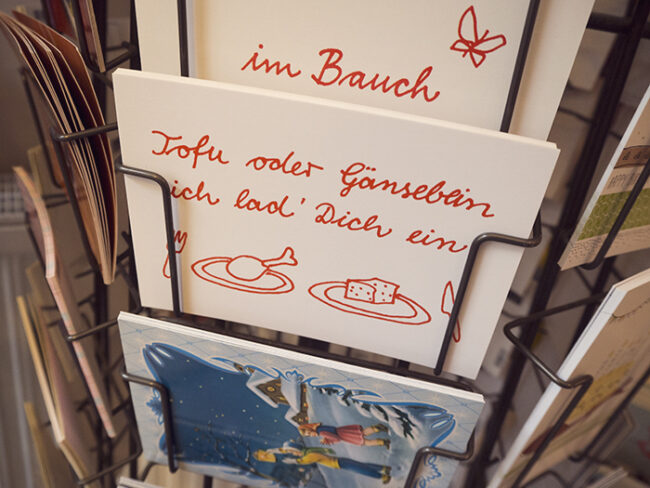 im Bauch
Tofu oder Gänsebein
ich lad' Dich ein